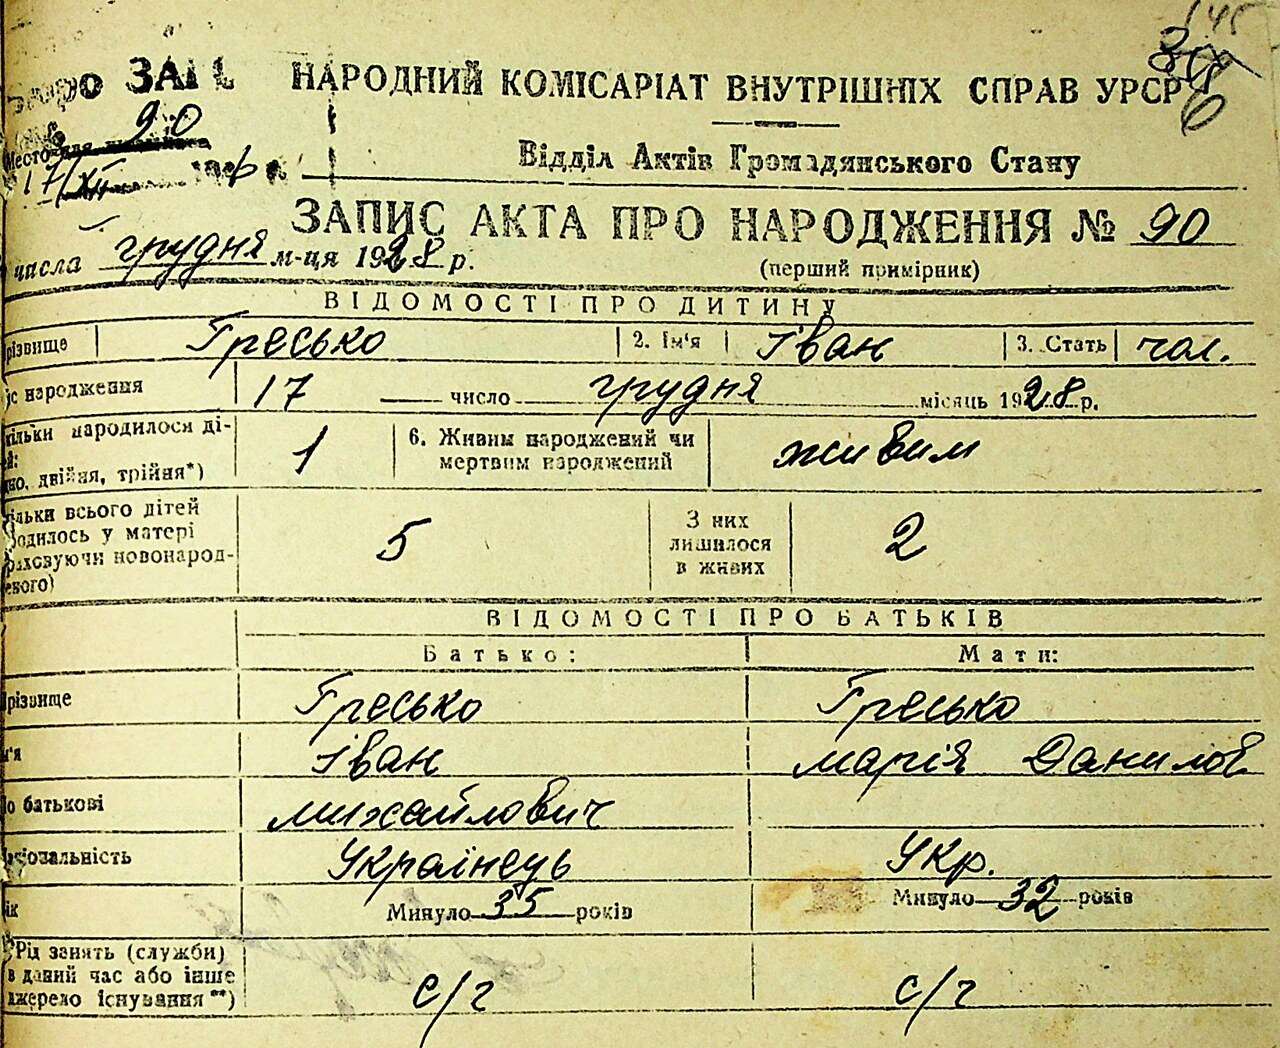 НАРОДНИЙ КОМІСАРІАТ ВНУТРІШНІХ СПРАВ УРСР
90
Відділ Актів Громадянського Стану
17/XII
ЗАПИС АКТА ПРО НАРОДЖЕННЯ № 90
числа грудня м-ця 1928 р.
(перший примірник)
ВІДОМОСТІ ПРО ДИТИНУ
різвище Гресько 2. Ім'я Іван 3. Стать чол.
с народження 17 число грудня місяць 1928 р.
ільки народилося ді-
й:
но, двійня, трійня*) 1 6. Живим народжений чи
мертвим народжений живим
ільки всього дітей
одилось у матері
раховуючи новонарод-
еного) 5 З них
лишилося
в живих 2
ВІДОМОСТІ ПРО БАТЬКІВ
Батько: Мати:
різвище Гресько Гресько
м'я Іван Марія Данилов
По батькові Михайлович
аціональність Українець Укр.
ік Минуло 35 років Минуло 32 років
Рід занять (служби)
в даний час або інше
джерело існування **) с/г с/г